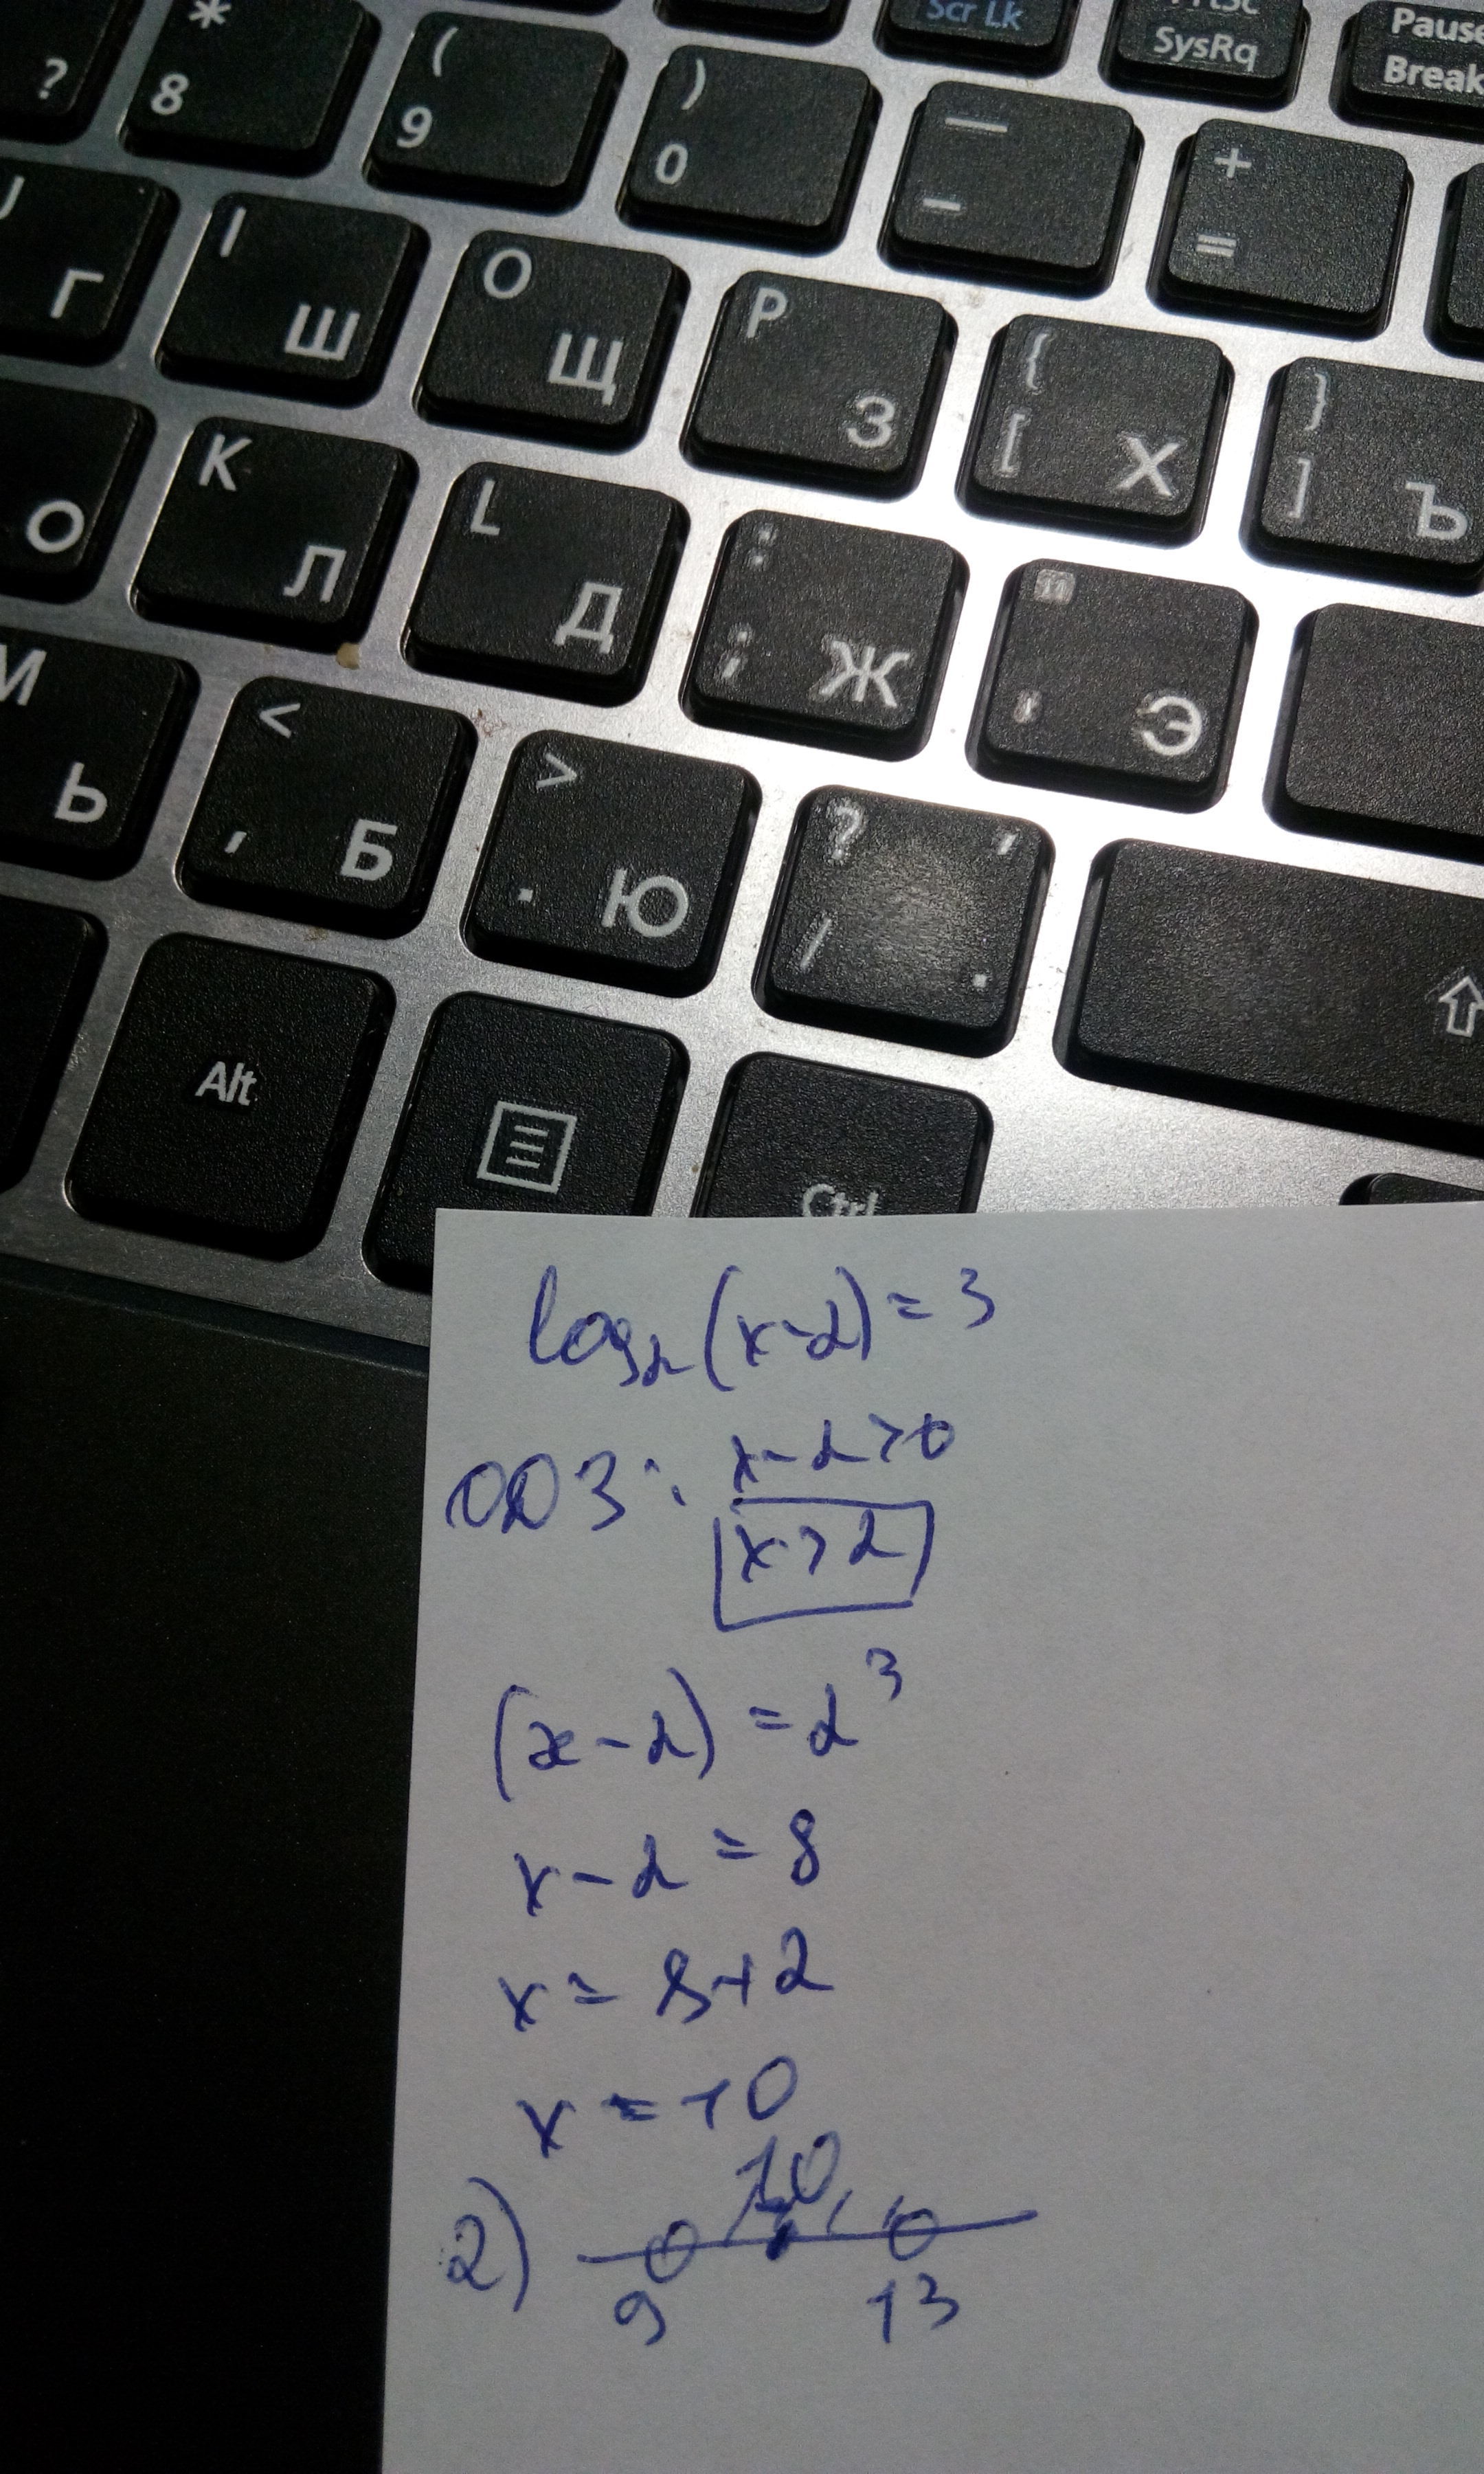 Scr Lk PrtSc SysRq Pause Break
? * 8 ( 9 ) 0 — - + =
J Г I Ш O Щ P З { [ Х } ] Ъ
О K Л L Д : ; Ж " ' Э
M Ь < , Б > . Ю ? / , .
Alt Ctrl
log₂(x-2)=3
ОДЗ: x-2>0
x>2
(x-2)=2³
x-2=8
x=8+2
x=10
2) 10
9 13